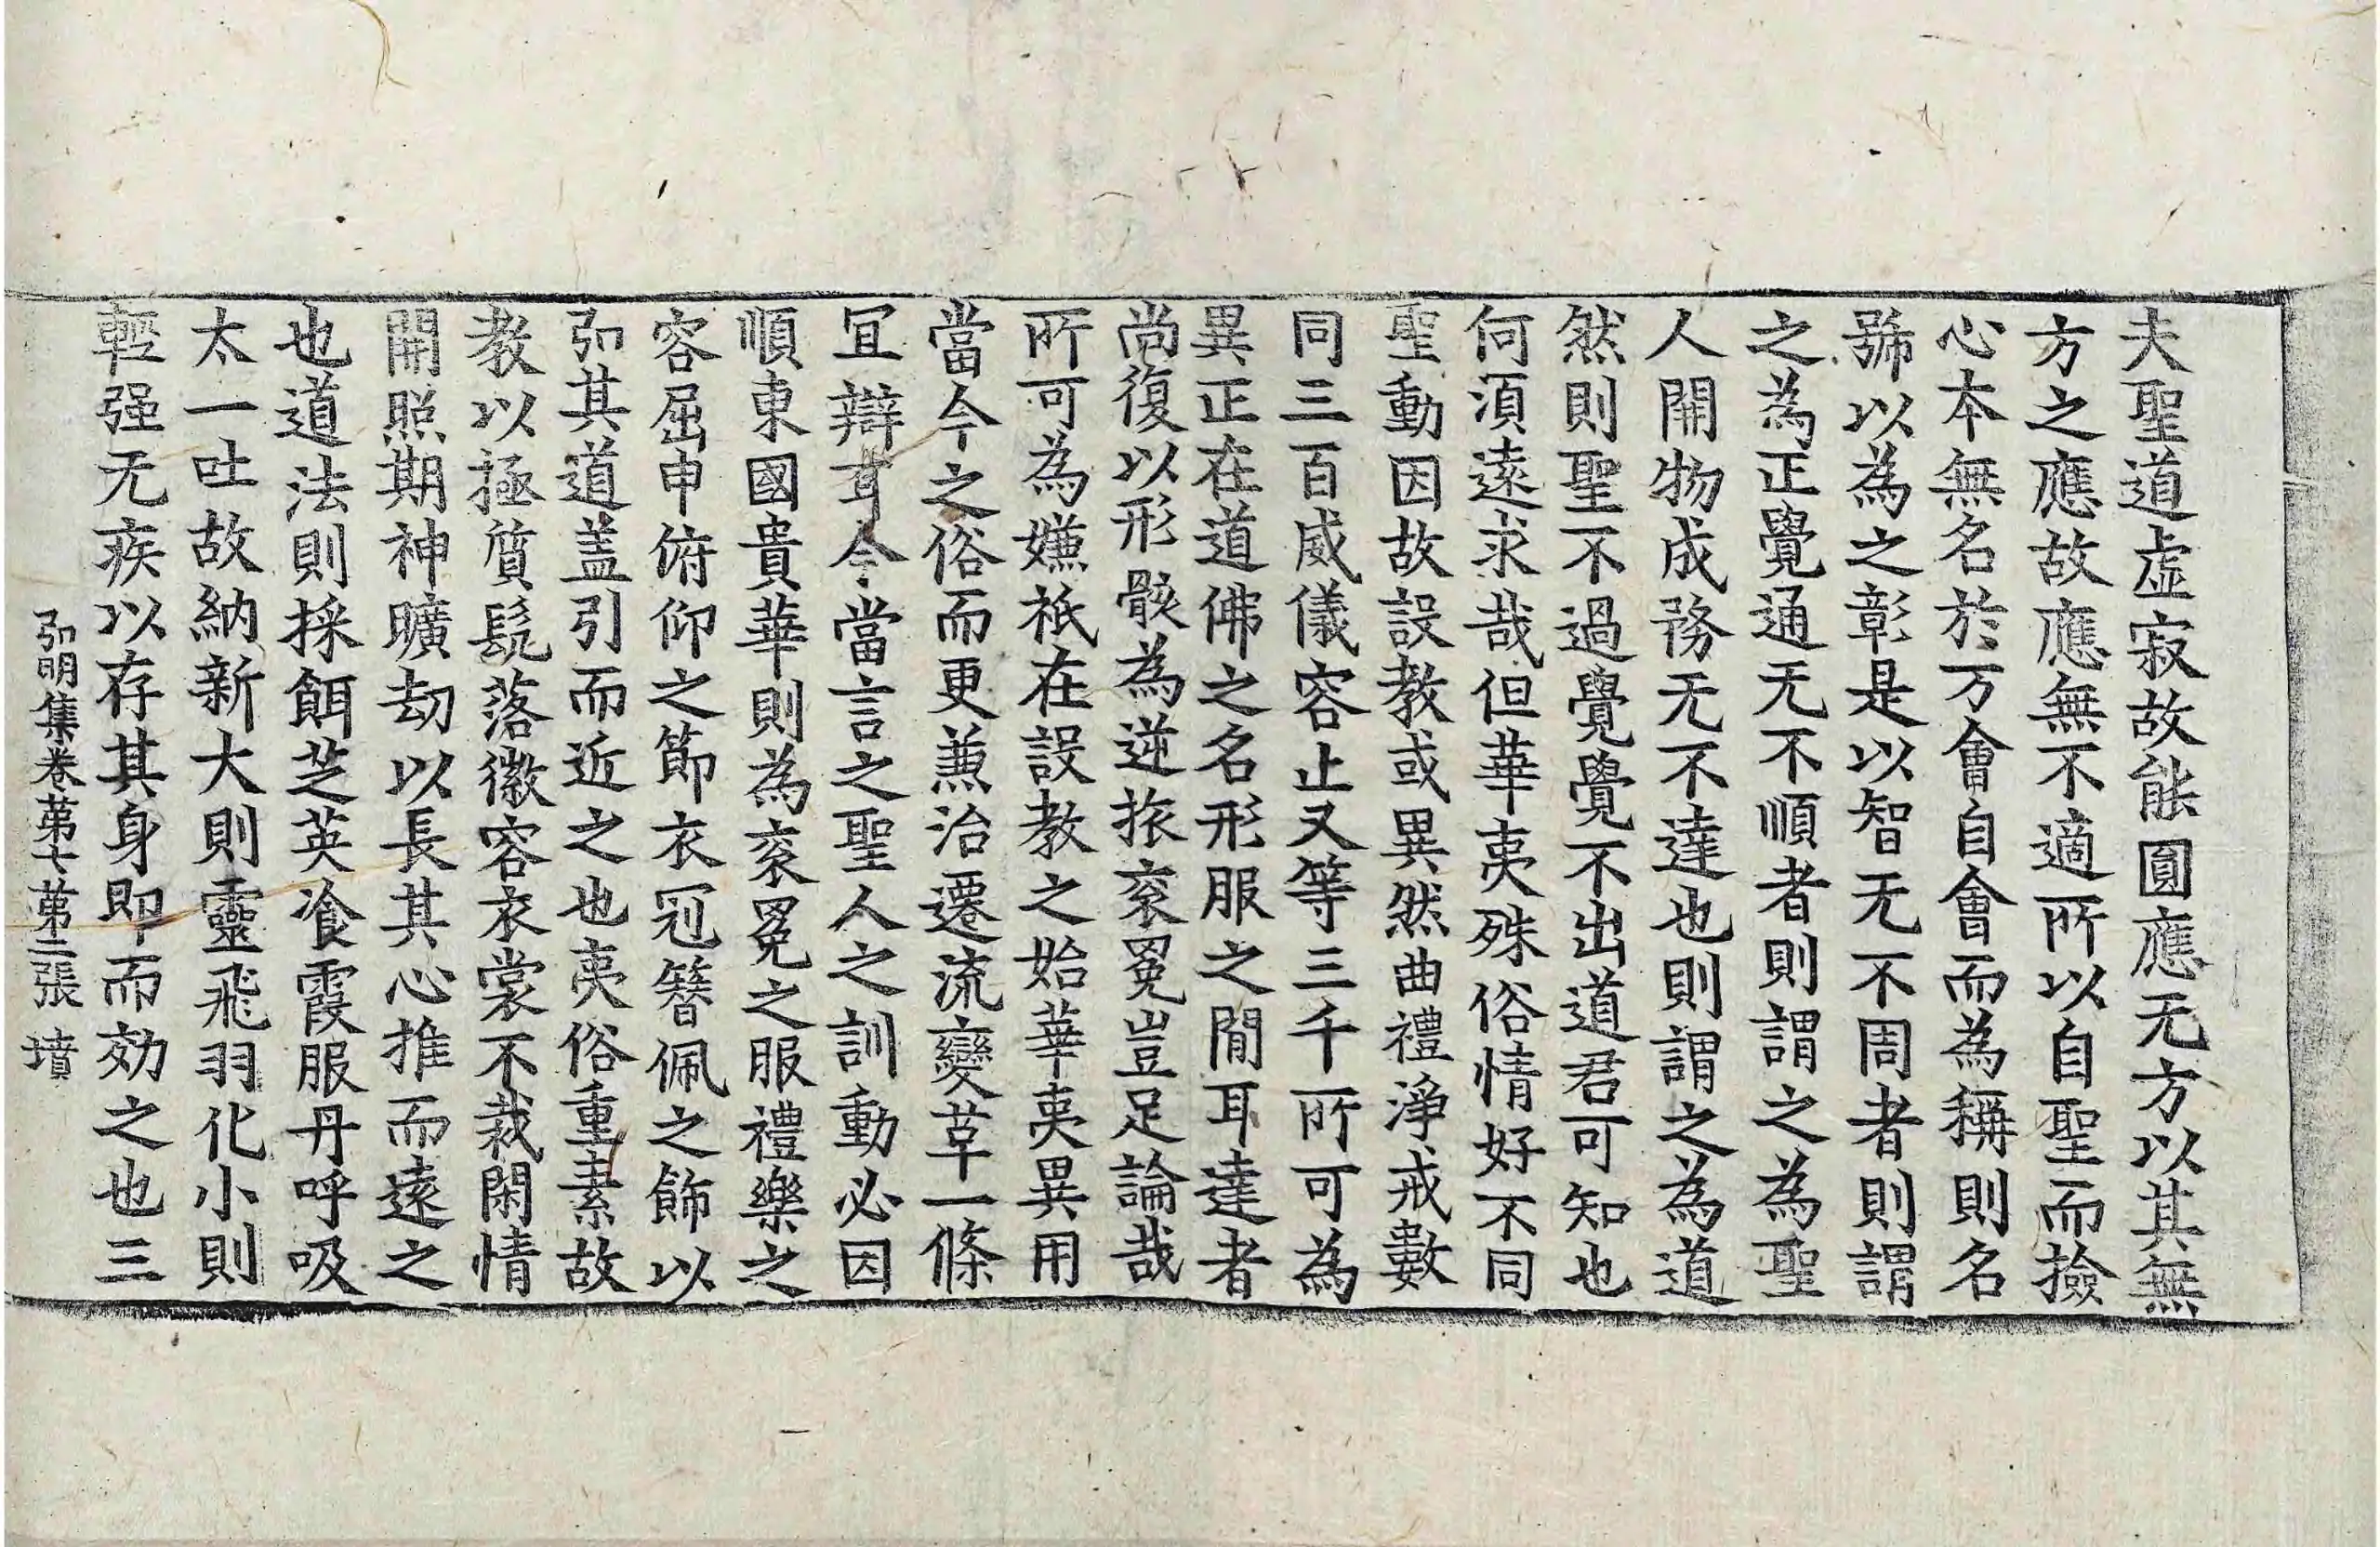 夫聖道虛寂故能圓應无方以其無
方之應故應無不適所以自聖而撿
心本無名於万會自會而為稱則名
號以為之彰是以智无不周者則謂
之為正覺通无不順者則謂之為聖
人開物成務无不達也則謂之為道
然則聖不過覺覺不出道君可知也
何湏遠求哉但華夷殊俗情好不同
聖動因故設教或異然曲禮淨戒數
同三百威儀容止又等三千所可為
異正在道佛之名形服之間耳達者
尚復以形骸為逆旅衮冕豈足論哉
所可為嫌祇在設教之始華夷異用
當今之俗而更兼治遷流變革一條
冝辯耳今當言之聖人之訓動必因
順東國貴華則為衮冕之服禮樂之
容屈申俯仰之節衣冠簪佩之飾以
弘其道盖引而近之也夷俗重素故
教以極質髡落徽容衣裳不裁閑情
開照期神曠劫以長其心推而遠之
也道法則採餌芝英飡霞服丹呼吸
太一吐故納新大則靈飛羽化小則
輕强无疾以存其身即而効之也三
弘明集卷苐七苐二張 墳